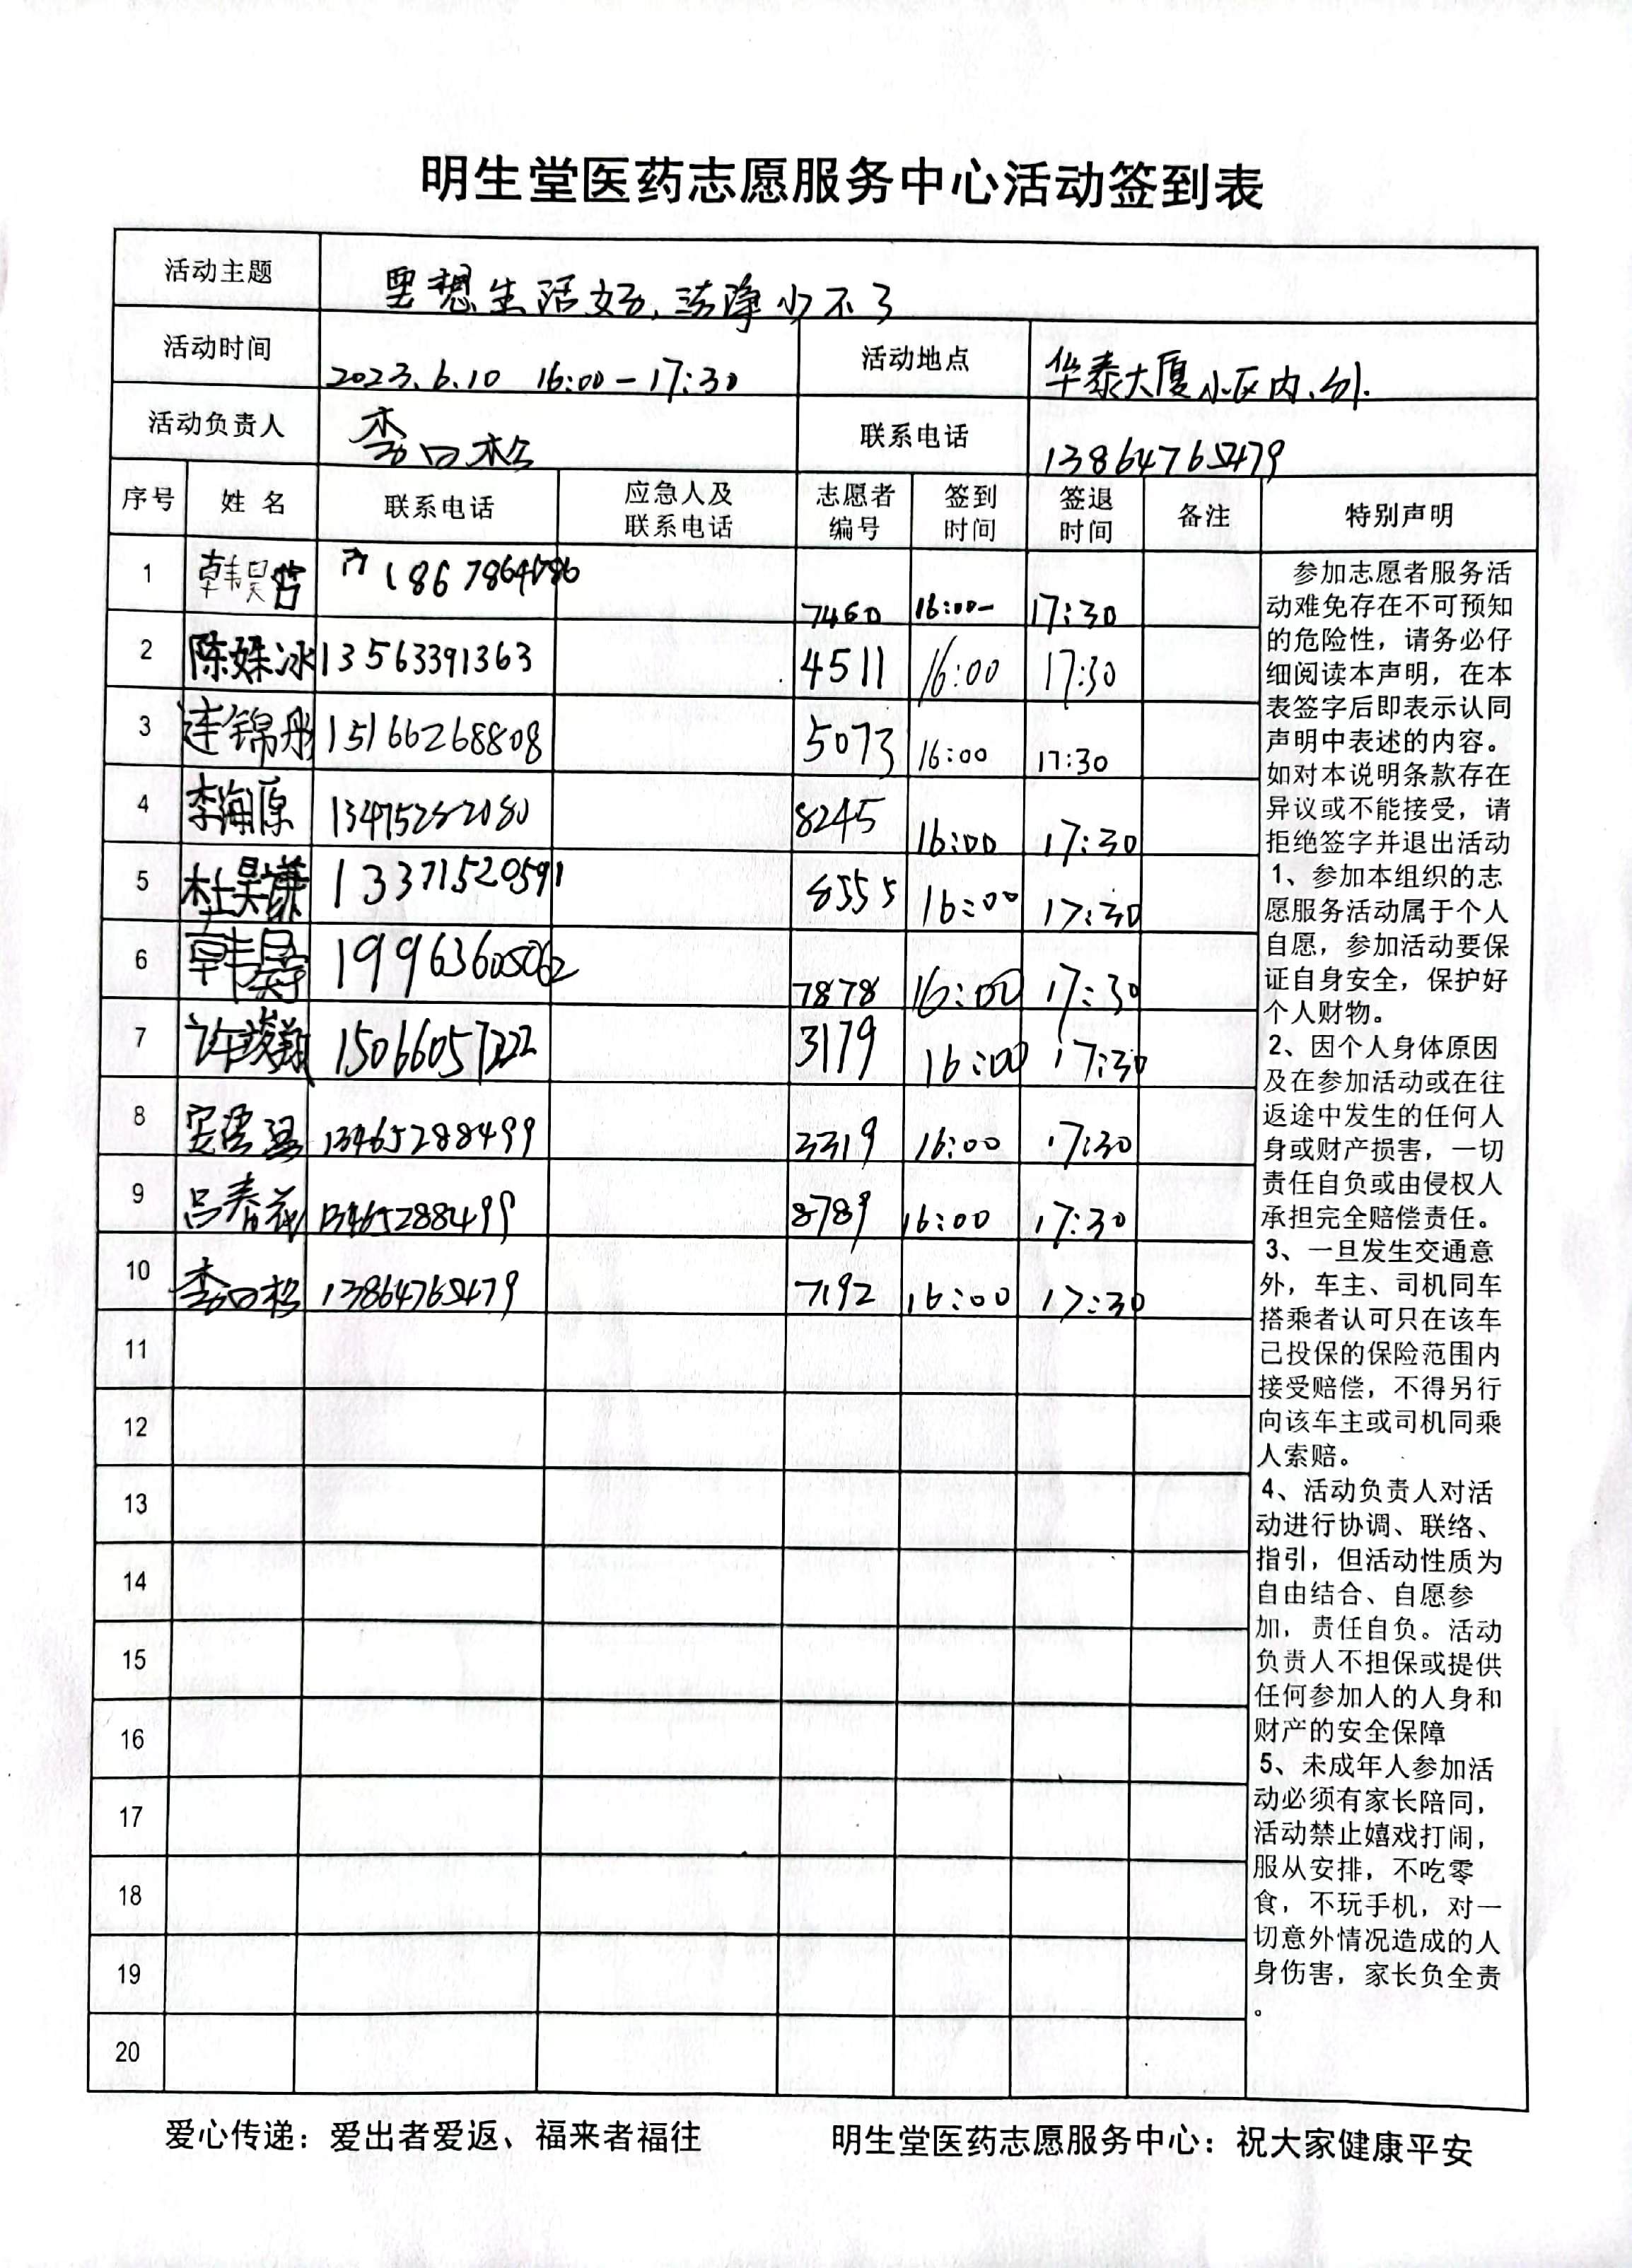 明生堂医药志愿服务中心活动签到表
活动主题 里想生活好、洁净少不了
活动时间 2023.6.10 16:00-17:30 活动地点 华泰大厦小区内、外.
活动负责人 李曰松 联系电话 13864765479
序号 姓名 联系电话 应急人及联系电话 志愿者编号 签到时间 签退时间 备注 特别声明
1 韩昊 7460 16:00- 17:30
2 陈姝冰 13563391363 4511 16:00 17:30
3 连锦彤 15166268808 5073 16:00 17:30
4 李海原 8245 16:00 17:30
5 杜昊谦 13371520591 8555 16:00 17:30
6 韩 19963605062 7878 16:00 17:30
7 许竣翔 15066057222 3179 16:00 17:30
8 13465288499 3319 16:00 17:30
9 吕春花 13465288499 8789 16:00 17:30
10 李曰松 13864765479 7192 16:00 17:30
11
12
13
14
15
16
17
18
19
20
参加志愿者服务活
动难免存在不可预知
的危险性，请务必仔
细阅读本声明，在本
表签字后即表示认同
声明中表述的内容。
如对本说明条款存在
异议或不能接受，请
拒绝签字并退出活动
1、参加本组织的志
愿服务活动属于个人
自愿，参加活动要保
证自身安全，保护好
个人财物。
2、因个人身体原因
及在参加活动或在往
返途中发生的任何人
身或财产损害，一切
责任自负或由侵权人
承担完全赔偿责任。
3、一旦发生交通意
外，车主、司机同车
搭乘者认可只在该车
已投保的保险范围内
接受赔偿，不得另行
向该车主或司机同乘
人索赔。
4、活动负责人对活
动进行协调、联络、
指引，但活动性质为
自由结合、自愿参
加，责任自负。活动
负责人不担保或提供
任何参加人的人身和
财产的安全保障
5、未成年人参加活
动必须有家长陪同，
活动禁止嬉戏打闹，
服从安排，不吃零
食，不玩手机，对一
切意外情况造成的人
身伤害，家长负全责
。
爱心传递：爱出者爱返、福来者福往 明生堂医药志愿服务中心：祝大家健康平安